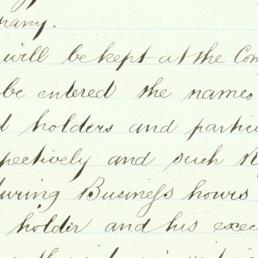 pany.
will be kept at the Com
be entered the names
d holders and partic
spectively and such
during Business hours
holder and his exec